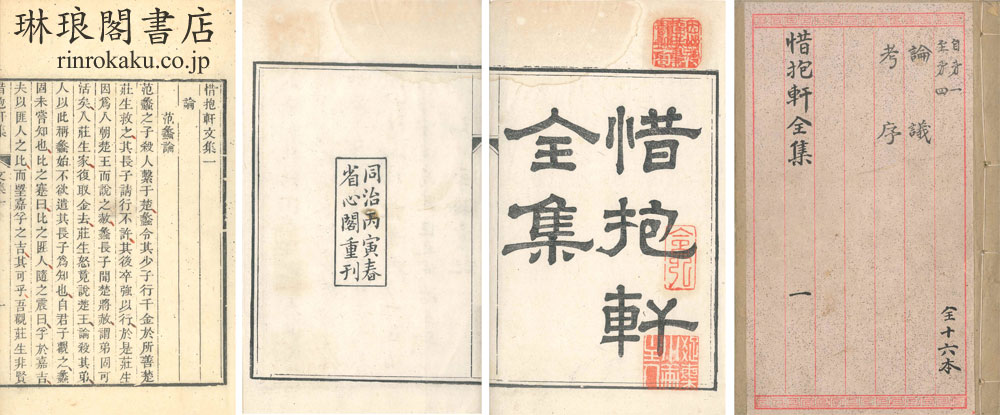 琳琅閣書店
rinrokaku.co.jp
惜抱軒文集一
論
范蠡論
范蠡之子殺人繫于楚蠡令其少子行千金於所善楚
莊生救之其長子請行不許其後卒強以行於是莊生
因爲人朝楚王而說之赦蠡長子聞楚將赦謂弟固可
活矣入莊生家復取金去莊生怒竟說楚王論殺其弟
人以此稱蠡始不欲遣其長子爲知也自君子觀之蠡
固未嘗知也比之蹇曰比之匪人隨之震曰孚於嘉吉
夫以匪人之比而望嘉孚之吉其可乎吾觀莊生非賢
同治丙寅春
省心閣重刊
惜抱軒
全集
自㐧一
至㐧四
論議
考序
惜抱軒全集
一
全十六本